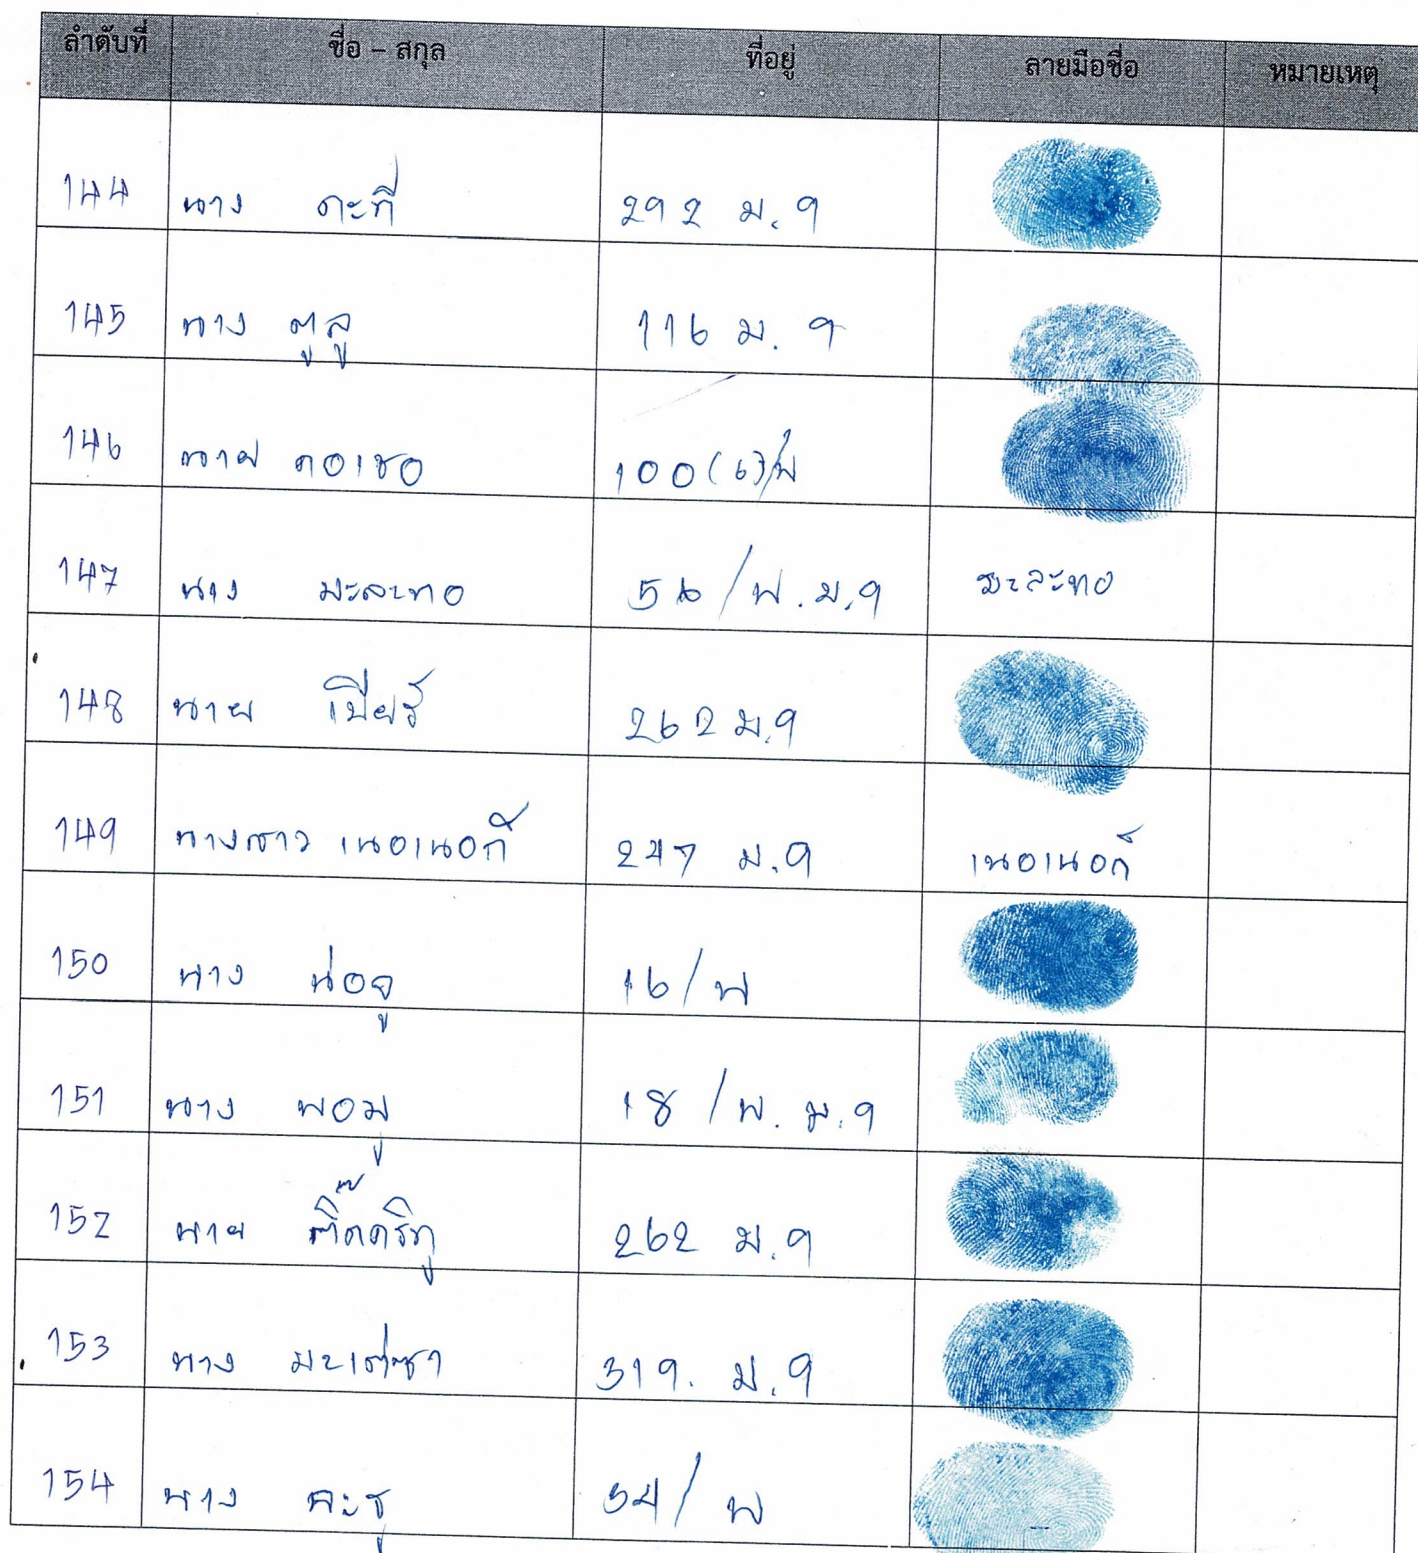 ลำดับที่ ชื่อ – สกุล ที่อยู่ ลายมือชื่อ หมายเหตุ
144 นาง คะที่ 292 ม.9
145 นาง ตูลู 116 ม. 9
146 นาย 100(6)/พ
147 นาง มะละทอ 56/พ.ม.9 มะละทอ
148 นาย เปียร์ 262 ม.9
149 นางสาว เนอเนอกี 247 ม.9 เนอเนอกี
150 นาง น่อจู 16/พ
151 นาง พอมู 18/พ.ม.9
152 นาย 262 ม.9
153 นาง 319. ม.9
154 นาง คะชู 34/พ